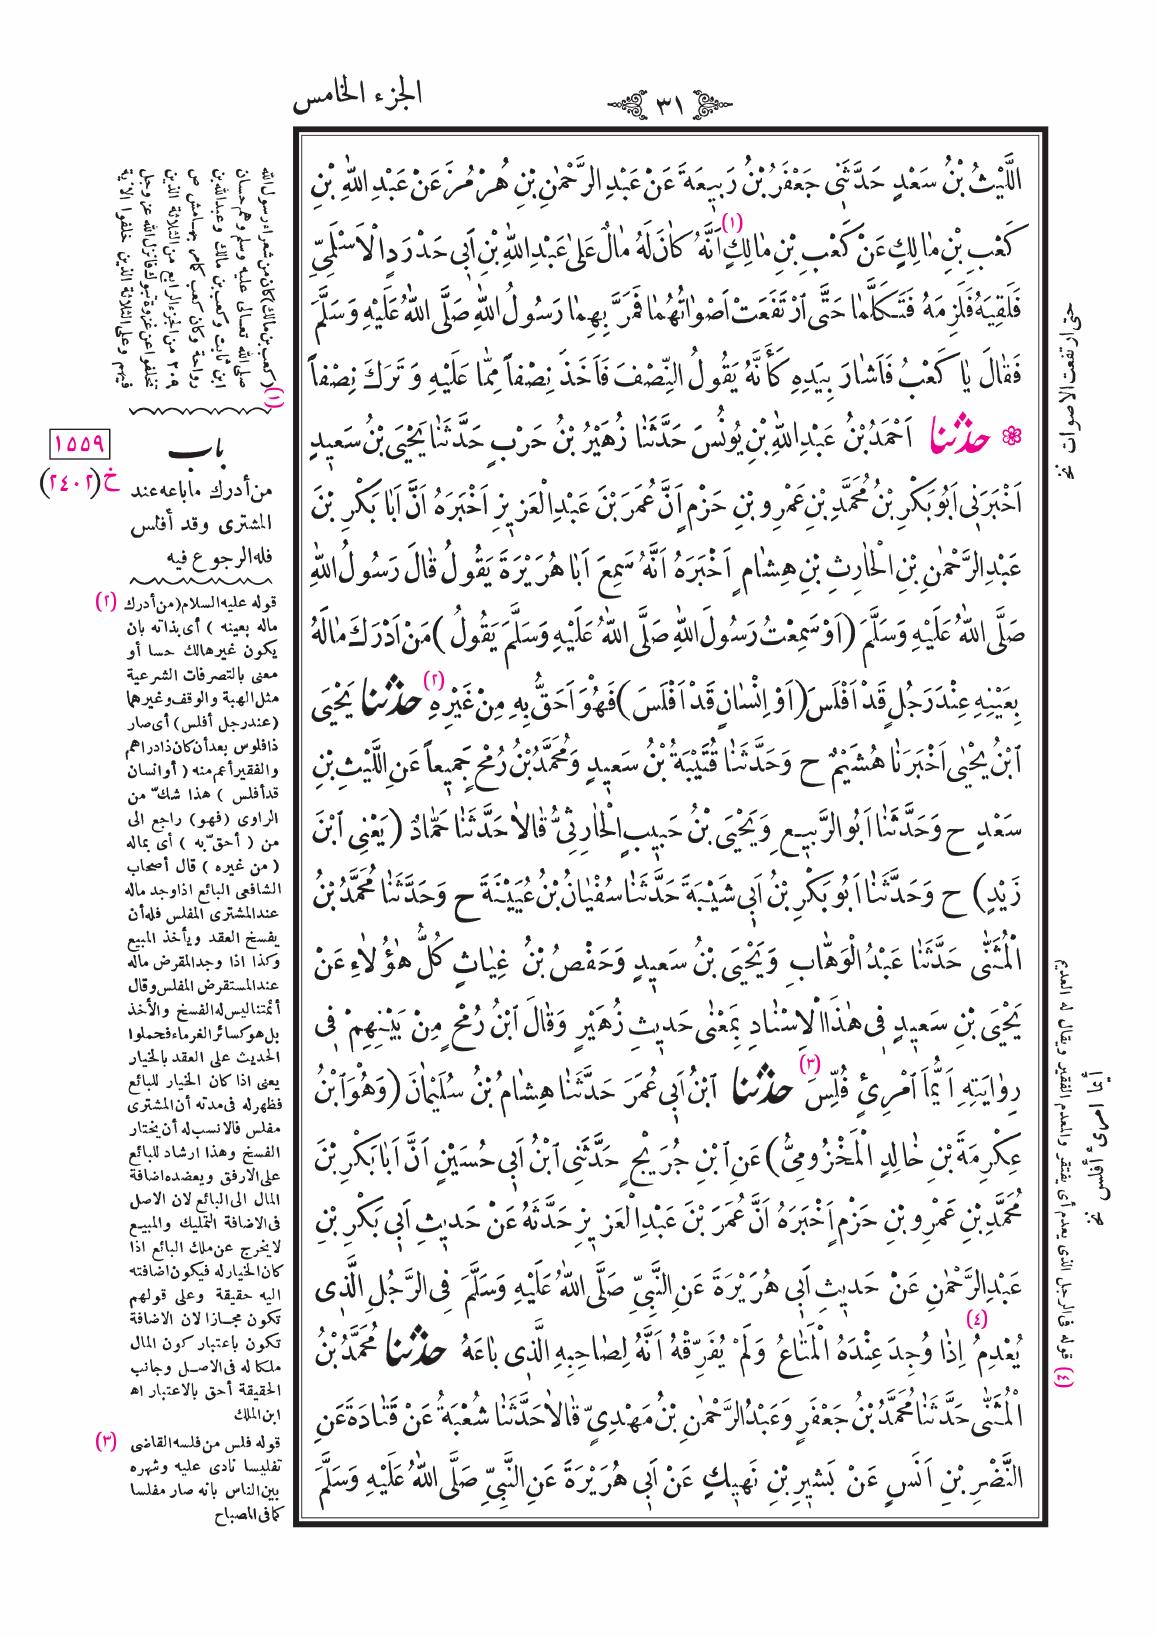 الجزء الخامس
٣١
اللَّيْثُ بْنُ سَعْدٍ حَدَّثَنِي جَعْفَرُ بْنُ رَبِيعَةَ عَنْ عَبْدِ الرَّحْمٰنِ بْنِ هُرْمُزَ عَنْ عَبْدِ اللهِ بْنِ
كَعْبِ بْنِ مَالِكٍ عَنْ كَعْبِ بْنِ مَالِكٍ (١) اَنَّهُ كَانَ لَهُ مَالٌ عَلَى عَبْدِ اللهِ بْنِ اَبِي حَدْرَدٍ الْاَسْلَمِيِّ
فَلَقِيَهُ فَلَزِمَهُ فَتَكَلَّمَا حَتَّى ارْتَفَعَتْ اَصْوَاتُهُمَا فَمَرَّ بِهِمَا رَسُولُ اللهِ صَلَّى اللهُ عَلَيْهِ وَسَلَّمَ
فَقَالَ يَا كَعْبُ فَاَشَارَ بِيَدِهِ كَاَنَّهُ يَقُولُ النِّصْفَ فَاَخَذَ نِصْفاً مِمَّا عَلَيْهِ وَتَرَكَ نِصْفاً
❁ حدثنا اَحْمَدُ بْنُ عَبْدِ اللهِ بْنِ يُونُسَ حَدَّثَنَا زُهَيْرُ بْنُ حَرْبٍ حَدَّثَنَا يَحْيَى بْنُ سَعِيدٍ
اَخْبَرَنِي اَبُو بَكْرِ بْنُ مُحَمَّدِ بْنِ عَمْرِو بْنِ حَزْمٍ اَنَّ عُمَرَ بْنَ عَبْدِ الْعَزِيزِ اَخْبَرَهُ اَنَّ اَبَا بَكْرِ بْنَ
عَبْدِ الرَّحْمٰنِ بْنِ الْحَارِثِ بْنِ هِشَامٍ اَخْبَرَهُ اَنَّهُ سَمِعَ اَبَا هُرَيْرَةَ يَقُولُ قَالَ رَسُولُ اللهِ
صَلَّى اللهُ عَلَيْهِ وَسَلَّمَ (اَوْ سَمِعْتُ رَسُولَ اللهِ صَلَّى اللهُ عَلَيْهِ وَسَلَّمَ يَقُولُ) مَنْ اَدْرَكَ مَالَهُ
بِعَيْنِهِ عِنْدَ رَجُلٍ قَدْ اَفْلَسَ (اَوْ اِنْسَانٍ قَدْ اَفْلَسَ) فَهُوَ اَحَقُّ بِهِ مِنْ غَيْرِهِ (٢) حدثنا يَحْيَى
ابْنُ يَحْيٰى اَخْبَرَنَا هُشَيْمٌ ح وَحَدَّثَنَا قُتَيْبَةُ بْنُ سَعِيدٍ وَمُحَمَّدُ بْنُ رُمْحٍ جَمِيعاً عَنِ اللَّيْثِ بْنِ
سَعْدٍ ح وَحَدَّثَنَا اَبُو الرَّبِيعِ وَيَحْيَى بْنُ حَبِيبٍ الْحَارِثِيُّ قَالَا حَدَّثَنَا حَمَّادٌ (يَعْنِي ابْنَ
زَيْدٍ) ح وَحَدَّثَنَا اَبُو بَكْرِ بْنُ اَبِي شَيْبَةَ حَدَّثَنَا سُفْيَانُ بْنُ عُيَيْنَةَ ح وَحَدَّثَنَا مُحَمَّدُ بْنُ
الْمُثَنَّى حَدَّثَنَا عَبْدُ الْوَهَّابِ وَيَحْيَى بْنُ سَعِيدٍ وَحَفْصُ بْنُ غِيَاثٍ كُلُّ هٰؤُلَاءِ عَنْ
يَحْيَى بْنِ سَعِيدٍ فِي هٰذَا الْاِسْنَادِ بِمَعْنٰى حَدِيثِ زُهَيْرٍ وَقَالَ ابْنُ رُمْحٍ مِنْ بَيْنِهِمْ فِي
رِوَايَتِهِ اَيُّمَا امْرِئٍ فُلِّسَ (٣) حدثنا ابْنُ اَبِي عُمَرَ حَدَّثَنَا هِشَامُ بْنُ سُلَيْمَانَ (وَهُوَ ابْنُ
عِكْرِمَةَ بْنِ خَالِدٍ الْمَخْزُومِيُّ) عَنِ ابْنِ جُرَيْجٍ حَدَّثَنِي ابْنُ اَبِي حُسَيْنٍ اَنَّ اَبَا بَكْرِ بْنَ
مُحَمَّدِ بْنِ عَمْرِو بْنِ حَزْمٍ اَخْبَرَهُ اَنَّ عُمَرَ بْنَ عَبْدِ الْعَزِيزِ حَدَّثَهُ عَنْ حَدِيثِ اَبِي بَكْرِ بْنِ
عَبْدِ الرَّحْمٰنِ عَنْ حَدِيثِ اَبِي هُرَيْرَةَ عَنِ النَّبِيِّ صَلَّى اللهُ عَلَيْهِ وَسَلَّمَ فِي الرَّجُلِ الَّذِي
يُعْدِمُ (٤) اِذَا وُجِدَ عِنْدَهُ الْمَتَاعُ وَلَمْ يُفَرِّقْهُ اَنَّهُ لِصَاحِبِهِ الَّذِي بَاعَهُ حدثنا مُحَمَّدُ بْنُ
الْمُثَنَّى حَدَّثَنَا مُحَمَّدُ بْنُ جَعْفَرٍ وَعَبْدُ الرَّحْمٰنِ بْنُ مَهْدِيٍّ قَالَا حَدَّثَنَا شُعْبَةُ عَنْ قَتَادَةَ عَنِ
النَّضْرِ بْنِ اَنَسٍ عَنْ بَشِيرِ بْنِ نَهِيكٍ عَنْ اَبِي هُرَيْرَةَ عَنِ النَّبِيِّ صَلَّى اللهُ عَلَيْهِ وَسَلَّمَ
حتى ارتفعت الاصوات نخ
أيما امرئ أفلس نخ
(٤) قوله فى الرجل الذى يعدم أى يفتقر والمعدم الفقير ويقال له العديم
(١) (كعب بن مالك) كان من شعراء رسول الله
صلى الله تعالى عليه وسلم وهم حسان
ابن ثابت وكعب بن مالك وعبدالله بن
رواحة وكان كعب كامر بهامش ص
٢٠٩ من الجزء الرابع من الثلاثة الذين
تخلفوا عن غزوة تبوك فانزل الله عز وجل
فيهم وعلى الثلاثة الذين خلفوا الآية
باب
١٥٥٩
خ (٢٤٠٢)
من أدرك ما باعه عند
المشترى وقد أفلس
فله الرجوع فيه
(٢) قوله عليه السلام (من أدرك
ماله بعينه) أى بذاته بان
يكون غير هالك حسا أو
معنى بالتصرفات الشرعية
مثل الهبة والوقف وغيرهما
(عند رجل أفلس) أى صار
ذا فلوس بعد أن كان ذا دراهم
والفقير أعم منه (أو انسان
قد أفلس) هذا شكّ من
الراوى (فهو) راجع الى
من (أحقّ به) أى بماله
(من غيره) قال أصحاب
الشافعى البائع اذا وجد ماله
عند المشترى المفلس فله أن
يفسخ العقد ويأخذ المبيع
وكذا اذا وجد المقرض ماله
عند المستقرض المفلس وقال
أئمتنا ليس له الفسخ والأخذ
بل هو كسائر الغرماء فحملوا
الحديث على العقد بالخيار
يعنى اذا كان الخيار للبائع
فظهر له فى مدته أن المشترى
مفلس فالانسب له أن يختار
الفسخ وهذا ارشاد للبائع
على الارفق ويعضده اضافة
المال الى البائع لان الاصل
فى الاضافة التمليك والمبيع
لا يخرج عن ملك البائع اذا
كان الخيار له فيكون اضافته
اليه حقيقة وعلى قولهم
تكون مجازا لان الاضافة
تكون باعتبار كون المال
ملكا له فى الاصل وجانب
الحقيقة أحق بالاعتبار اه
ابن الملك
(٣) قوله فلس من فلسه القاضى
تفليسا نادى عليه وشهره
بين الناس بانه صار مفلسا
كما فى المصباح